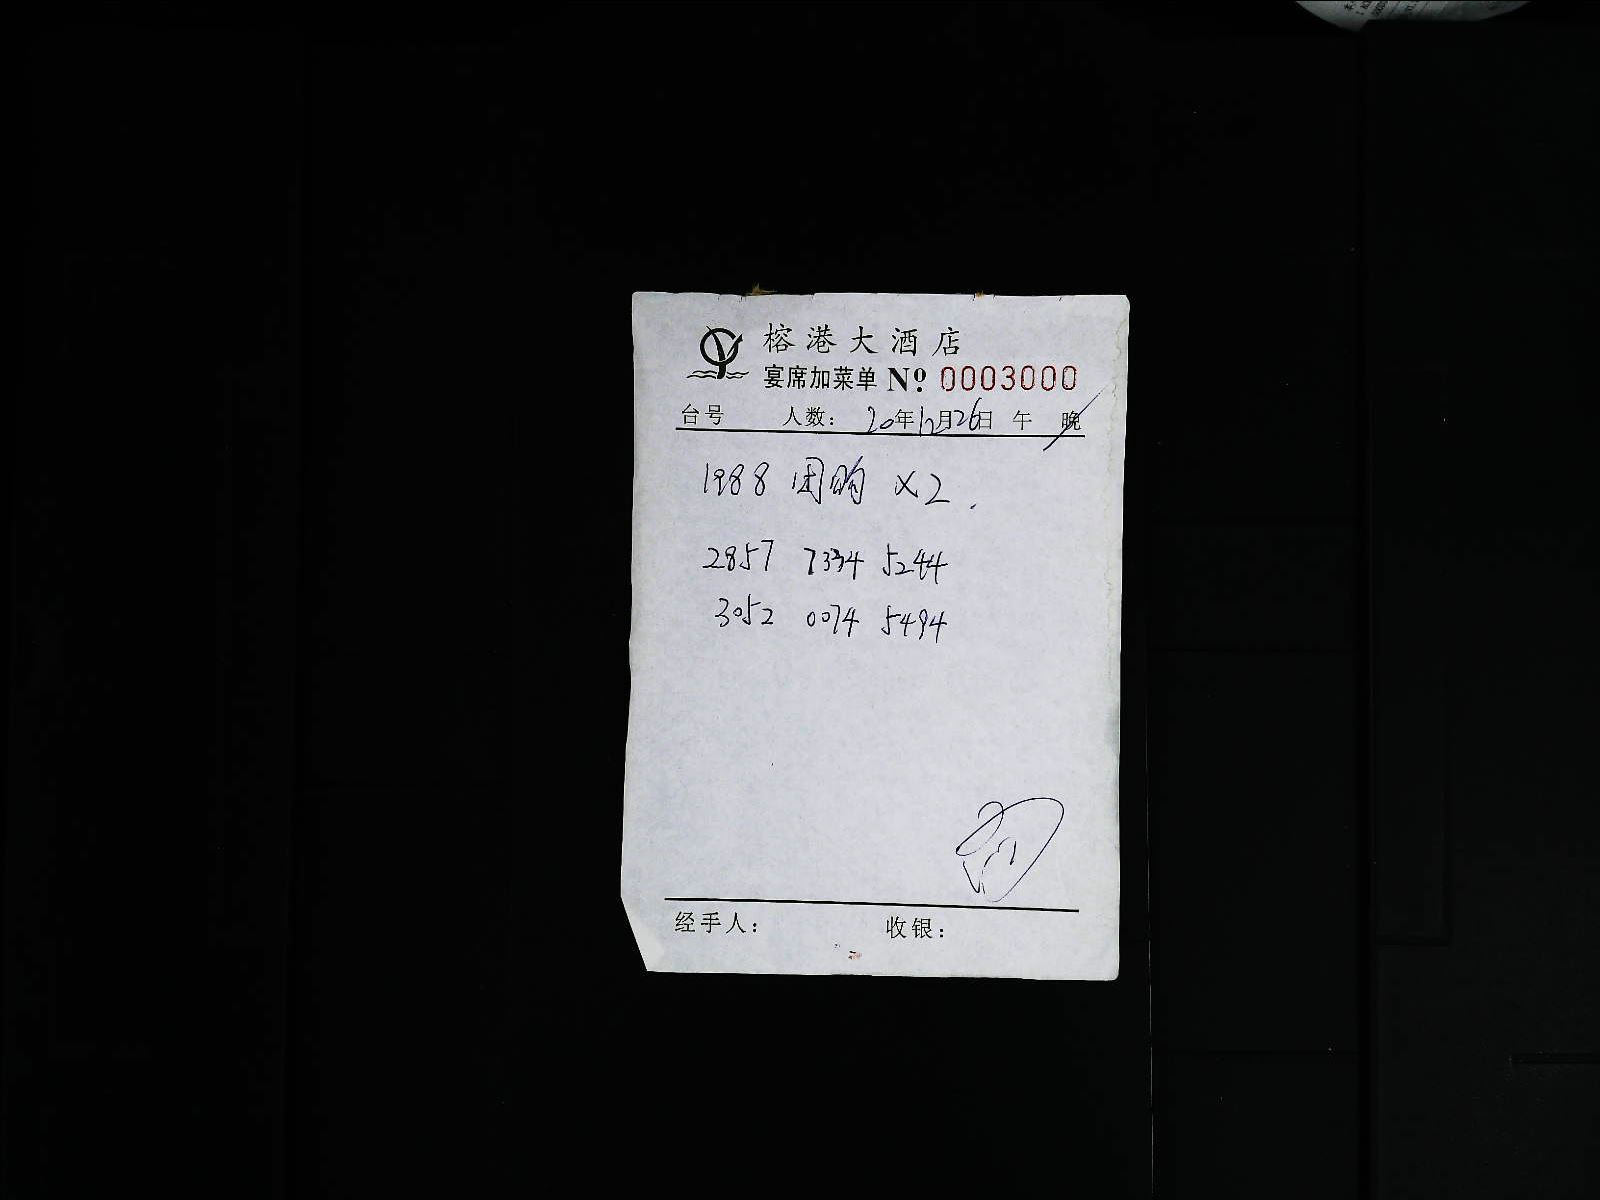 榕港大酒店
宴席加菜单 № 0003000
台号 人数: 20年12月26日 午 晚
1988 团购 x2.
2857 7334 5244
3052 0074 5494
经手人: 收银: